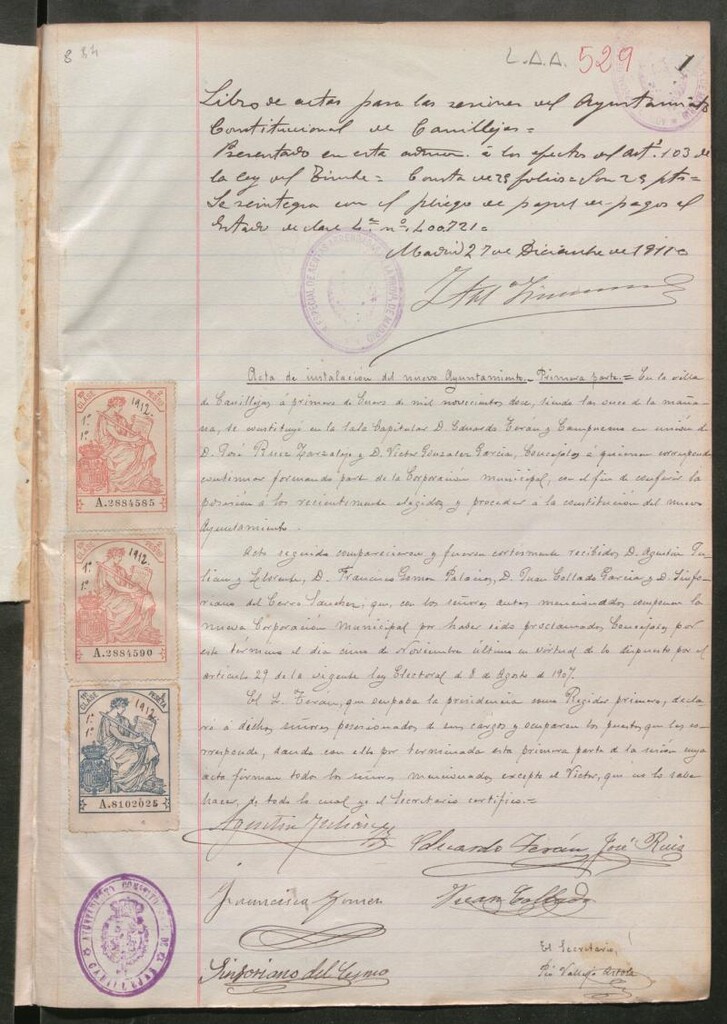 884
L.A.A. 529
1
Libro de actas para las sesiones del Ayuntamiento
Constitucional de Canillejas=
Presentado en esta á los efectos del artº. 103 de
la ley del Timbre= Consta de 25 folios= Son 25 pts=
Se reintegra con el pliego de papel de pagos al
Estado de clase nº. 400.721=
Madrid 27 de Diciembre de 1911=
Acta de instalación del nuevo Ayuntamiento.- Primera parte.= En la villa
de Canillejas á primero de Enero de mil novecientos doce, siendo las once de la maña-
na, se constituyó en la Sala Capitular D. Eduardo Terán y en unión de
D. José Ruiz Zarzalejo y D. Victor Gonzalez Garcia, Concejales á quienes corresponde
continuar formando parte de la Corporación municipal, con el fin de conferir la
posesión á los recientemente elegidos y proceder á la constitución del nuevo
Ayuntamiento.
Acto seguido comparecieron y fueron cortesmente recibidos D. Agustin Ju-
lian y Llorente, D. Francisco Gomez Palacios, D. Juan Collado Garcia y D. Sinfo-
riano del Cerro Sanchez, que, con los señores antes mencionados componen la
nueva Corporación municipal por haber sido proclamados Concejales por
este término el dia cinco de Noviembre último en virtud de lo dispuesto por el
articulo 29 de la vigente ley Electoral de 8 de Agosto de 1907.
El S. Terán, que ocupaba la presidencia como Regidor primero, decla-
ró á dichos señores posesionados de sus cargos y ocuparon los puestos que les co-
rresponde, dando con ello por terminada esta primera parte de la sesión cuya
acta firman todos los señores mencionados excepto el Victor, que no lo sabe
hacer, de todo lo cual yo el Secretario certifico.=
Agustin Julián
Eduardo Terán José Ruiz
Francisco Gomez
Juan Collado
Sinforiano del Cerro
El Secretario,
Vallejo
CLASE
PESETA
1912.
1º
1º
A.2884585
1912.
1º
1º
A.2884590
CLASE
PESETA
1912.
1º
1º
A.8102025
AYUNTAMIENTO CONSTITUCIONAL DE CANILLEJAS